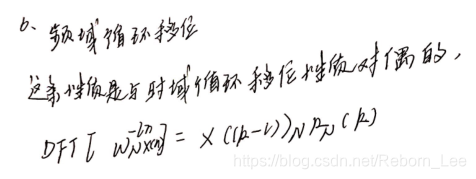 6、频域循环移位
这条性质是与时域循环移位性质对偶的,
DFT[ W_N^{-ln} x(n)] = X((k-l))_N R_N(k)
https://blog.csdn.net/Reborn_Lee